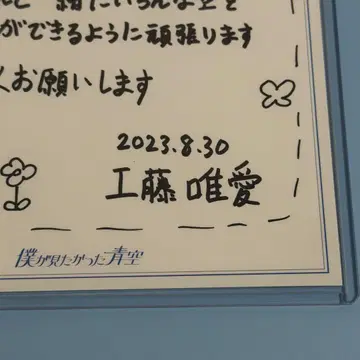 一緒にいろんな空を
ができるように頑張ります
お願いします
2023.8.30
工藤唯愛
僕が見たかった青空